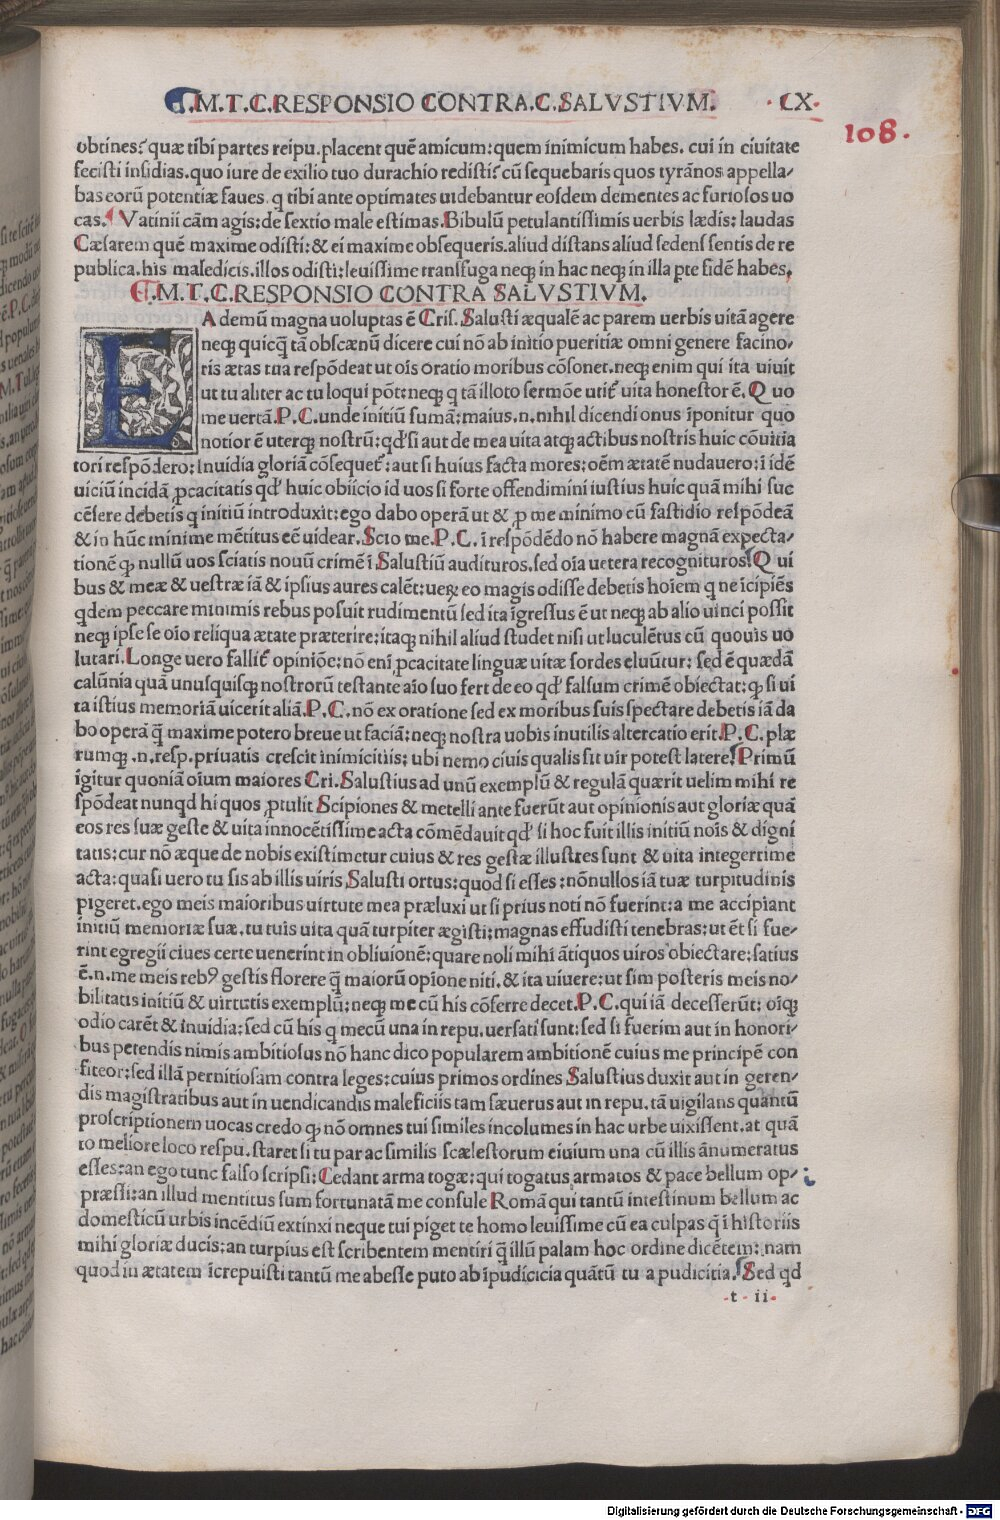 M.T.C.RESPONSIO CONTRA.C.SALVSTIVM. .CX.
108.
obtines? quæ tibi partes reipu.placent quē amicum: quem inimicum habes. cui in ciuitate
fecisti insidias.quo iure de exilio tuo durachio redisti? cū sequebaris quos tyrānos appella/
bas eorū potentiæ faues. q tibi ante optimates uidebantur eosdem dementes ac furiosos uo
cas. Vatinii cām agis: de sextio male estimas. Bibulū petulantissimis uerbis lædis: laudas
Cæsarem quē maxime odisti: & ei maxime obsequeris.aliud distans aliud sedens sentis de re
publica.his maledicis.illos odisti: leuissime transfuga neqȝ in hac neqȝ in illa pte fidē habes.
.M.T.C.RESPONSIO CONTRA SALVSTIVM.
EA demū magna uoluptas ē Cris. Salusti æqualē ac parem uerbis uitā agere
neqȝ quicq̄ tā obscænū dicere cui nō ab initio pueritiæ omni genere facino/
ris ætas tua respōdeat ut oīs oratio moribus cōsonet.neqȝ enim qui ita uiuit
ut tu aliter ac tu loqui pōt: neqȝ q tā illoto sermōe utit᷑ uita honestor ē. Quo
me uertā.P.C.unde initiū sumā: maius.n.nihil dicendi onus īponitur quo
notior ē uterqȝ nostrū: qd' si aut de mea uita atqȝ actibus nostris huic cōuitia
tori respōdero: Inuidia gloriā cōsequet᷑: aut si huius facta mores: oēm ætatē nudauero: ī idē
uiciū incidā ꝓcacitatis qd' huic obiicio id uos si forte offendimini iustius huic quā mihi suc
cēsere debetis q initiū introduxit: ego dabo operā ut & ꝓ me minimo cū fastidio respōdeā
& in hūc minime mētitus eē uidear. Scio me.P.C.ī respōdēdo nō habere magnā expecta/
tionē qꝫ nullū uos sciatis nouū crimē ī Salustiū audituros.sed oīa uetera recognituros. Qui
bus & meæ & uestræ iā & ipsius aures calēt: ueꝝ eo magis odisse debetis hoīem q ne īcipiēs
qdem peccare minimis rebus posuit rudimentū sed ita īgressus ē ut neqȝ ab alio uinci possit
neqȝ ipse se oīo reliqua ætate præterire: itaqȝ nihil aliud studet nisi ut luculētus cū quouis uo
lutari. Longe uero fallit᷑ opiniōe: nō enī ꝓcacitate linguæ uitæ sordes eluūtur: sed ē quædā
calūnia quā unusquisqȝ nostrorū testante aīo suo fert de eo qd' falsum crimē obiectat: qꝫ si ui
ta istius memoriā uicerit aliā.P.C.nō ex oratione sed ex moribus suis spectare debetis iā da
bo operā q̄ maxime potero breue ut faciā: neqȝ nostra uobis inutilis altercatio erit.P.C.plæ
rumqȝ .n.resp.priuatis crescit inimicitiis: ubi nemo ciuis qualis sit uir potest latere. Primū
igitur quoniā oīum maiores Cri. Salustius ad unū exemplū & regulā quærit uelim mihi re
spōdeat nunqd hi quos ꝓtulit Scipiones & metelli ante fuerūt aut opinionis aut gloriæ quā
eos res suæ geste & uita innocētissime acta cōmēdauit qd' si hoc fuit illis initiū noīs & digni
tatis: cur nō æque de nobis existimetur cuius & res gestæ illustres sunt & uita integerrime
acta: quasi uero tu sis ab illis uiris Salusti ortus: quod si esses: nōnullos iā tuæ turpitudinis
pigeret.ego meis maioribus uirtute mea præluxi ut si prius noti nō fuerint: a me accipiant
initiū memoriæ suæ.tu tuis uita quā turpiter ægisti: magnas effudisti tenebras: ut ēt si fue/
rint egregii ciues certe uenerint in obliuionē: quare noli mihi ātiquos uiros obiectare: satius
ē.n.me meis reb⁹ gestis florere q̄ maiorū opione niti.& ita uiuere: ut sim posteris meis no/
bilitatis initiū & uirtutis exemplū: neqȝ me cū his cōferre decet.P.C.qui iā decesserūt: oīqȝ
odio carēt & inuidia: sed cū his q mecū una in repu.uersati sunt: sed si fuerim aut in honori/
bus petendis nimis ambitiosus nō hanc dico popularem ambitionē cuius me principē con
fiteor: sed illā pernitiosam contra leges: cuius primos ordines Salustius duxit aut in geren/
dis magistratibus aut in uendicandis maleficiis tam sæuerus aut in repu.tā uigilans quantū
proscriptionem uocas credo qꝫ nō omnes tui similes incolumes in hac urbe uixissent.at quā
to meliore loco respu.staret si tu par ac similis scælestorum ciuium una cū illis ānumeratus
esses: an ego tunc falso scripsi: Cedant arma togæ: qui togatus armatos & pace bellum op/
pressi: an illud mentitus sum fortunatā me consule Romā qui tantū intestinum bellum ac
domesticū urbis incēdiū extinxi neque tui piget te homo leuissime cū ea culpas q̄ ī historiis
mihi gloriæ ducis: an turpius est scribentem mentiri q̄ illū palam hoc ordine dicētem: nam
quod in ætatem īcrepuisti tantū me abesse puto ab īpudicicia quātū tu a pudicitia. Sed qd
.t.ii.
Digitalisierung gefördert durch die Deutsche Forschungsgemeinschaft - DFG